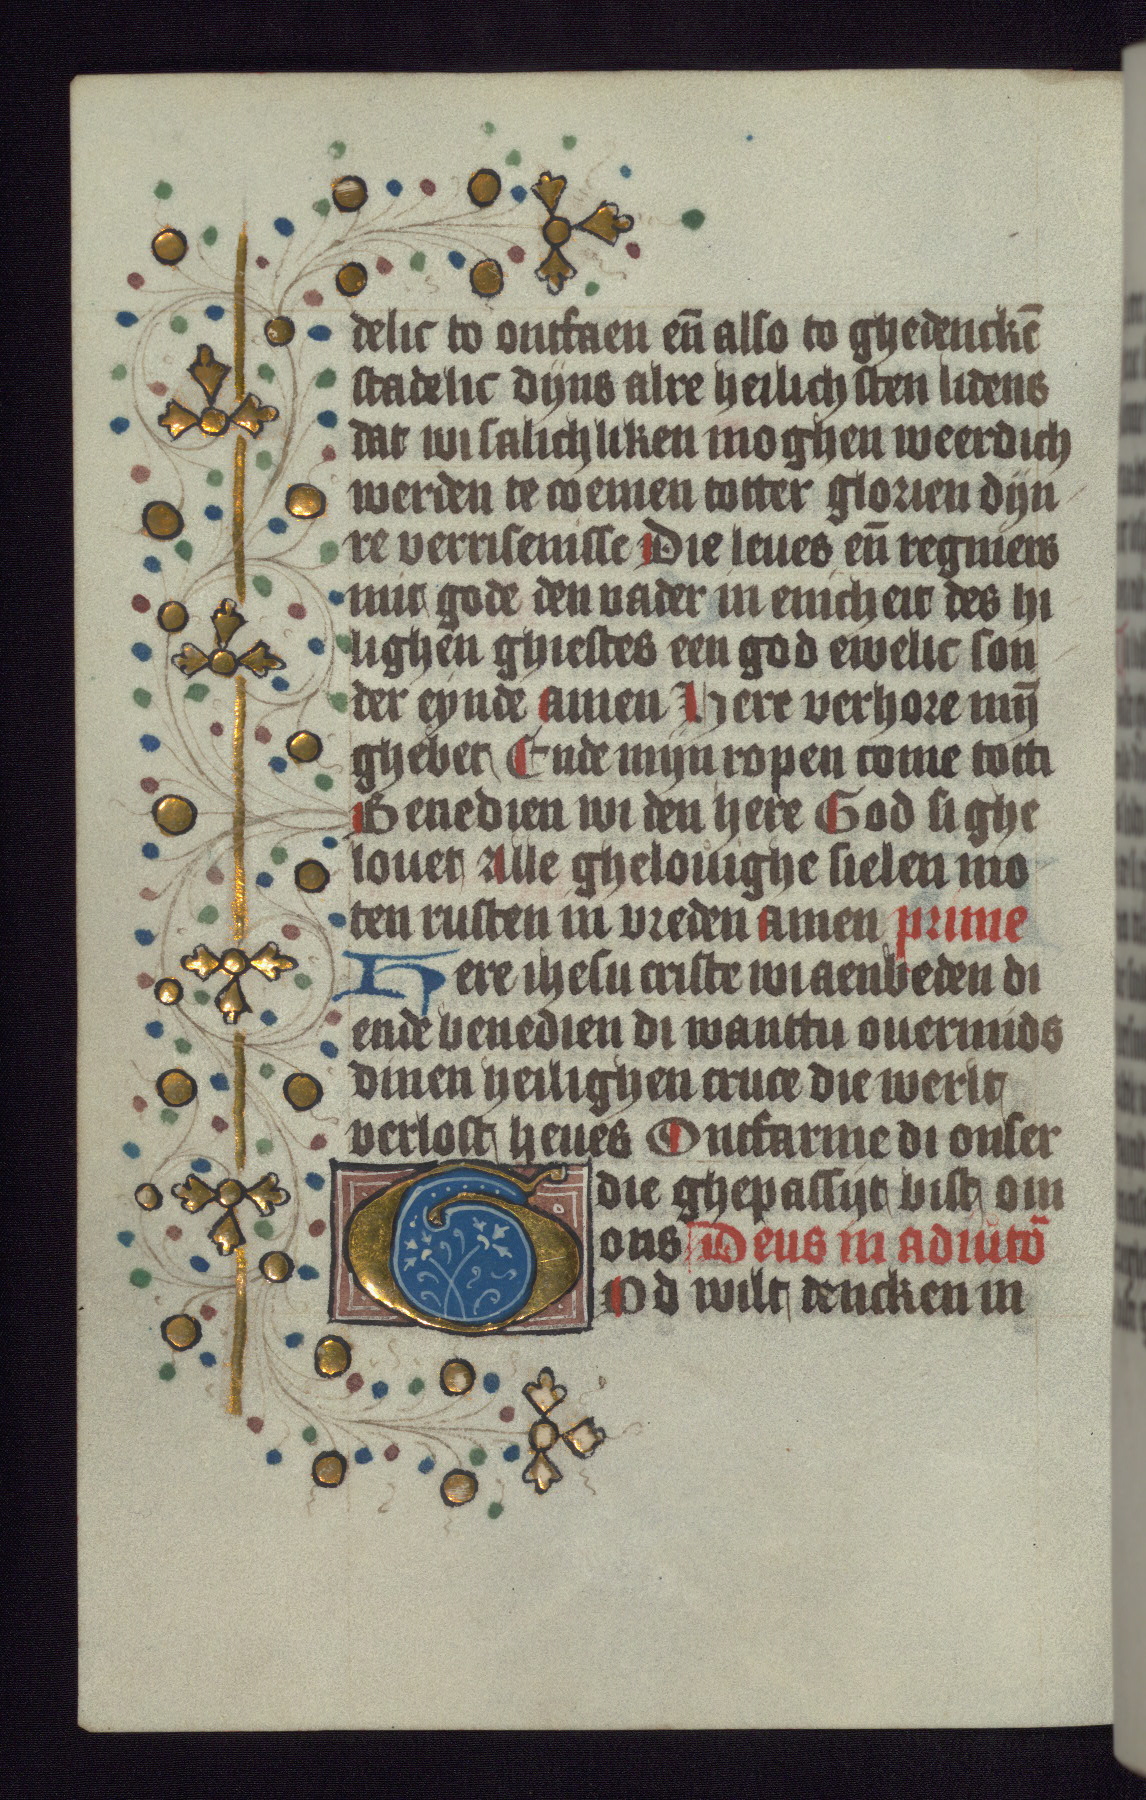 delic to ontfaen en̄ also to ghedenckē
stadelic dijns alre heilichsten lidens
dat wi salichliken moghen weerdich
werden te comen totter glorien dijn
re verrisenisse Die leues en̄ regniers
mit gode den vader in enicheit des hi
lighen ghiestes een god ewelic son
der eynde amen Here verhore mij̄
ghebet Ende mijn ropen come totti
Benedien wi den here God si ghe
louet Alle ghelouighe sielen mo
ten rusten in vreden amen prime
Here ihesu criste wi aenbeden di
ende benedien di wanttu ouermids
dinen heilighen cruce die werlt
verlost heues Ontfarme di onser
die ghepassijt bist om
ons Deus in adiutō
God wilt dencken in